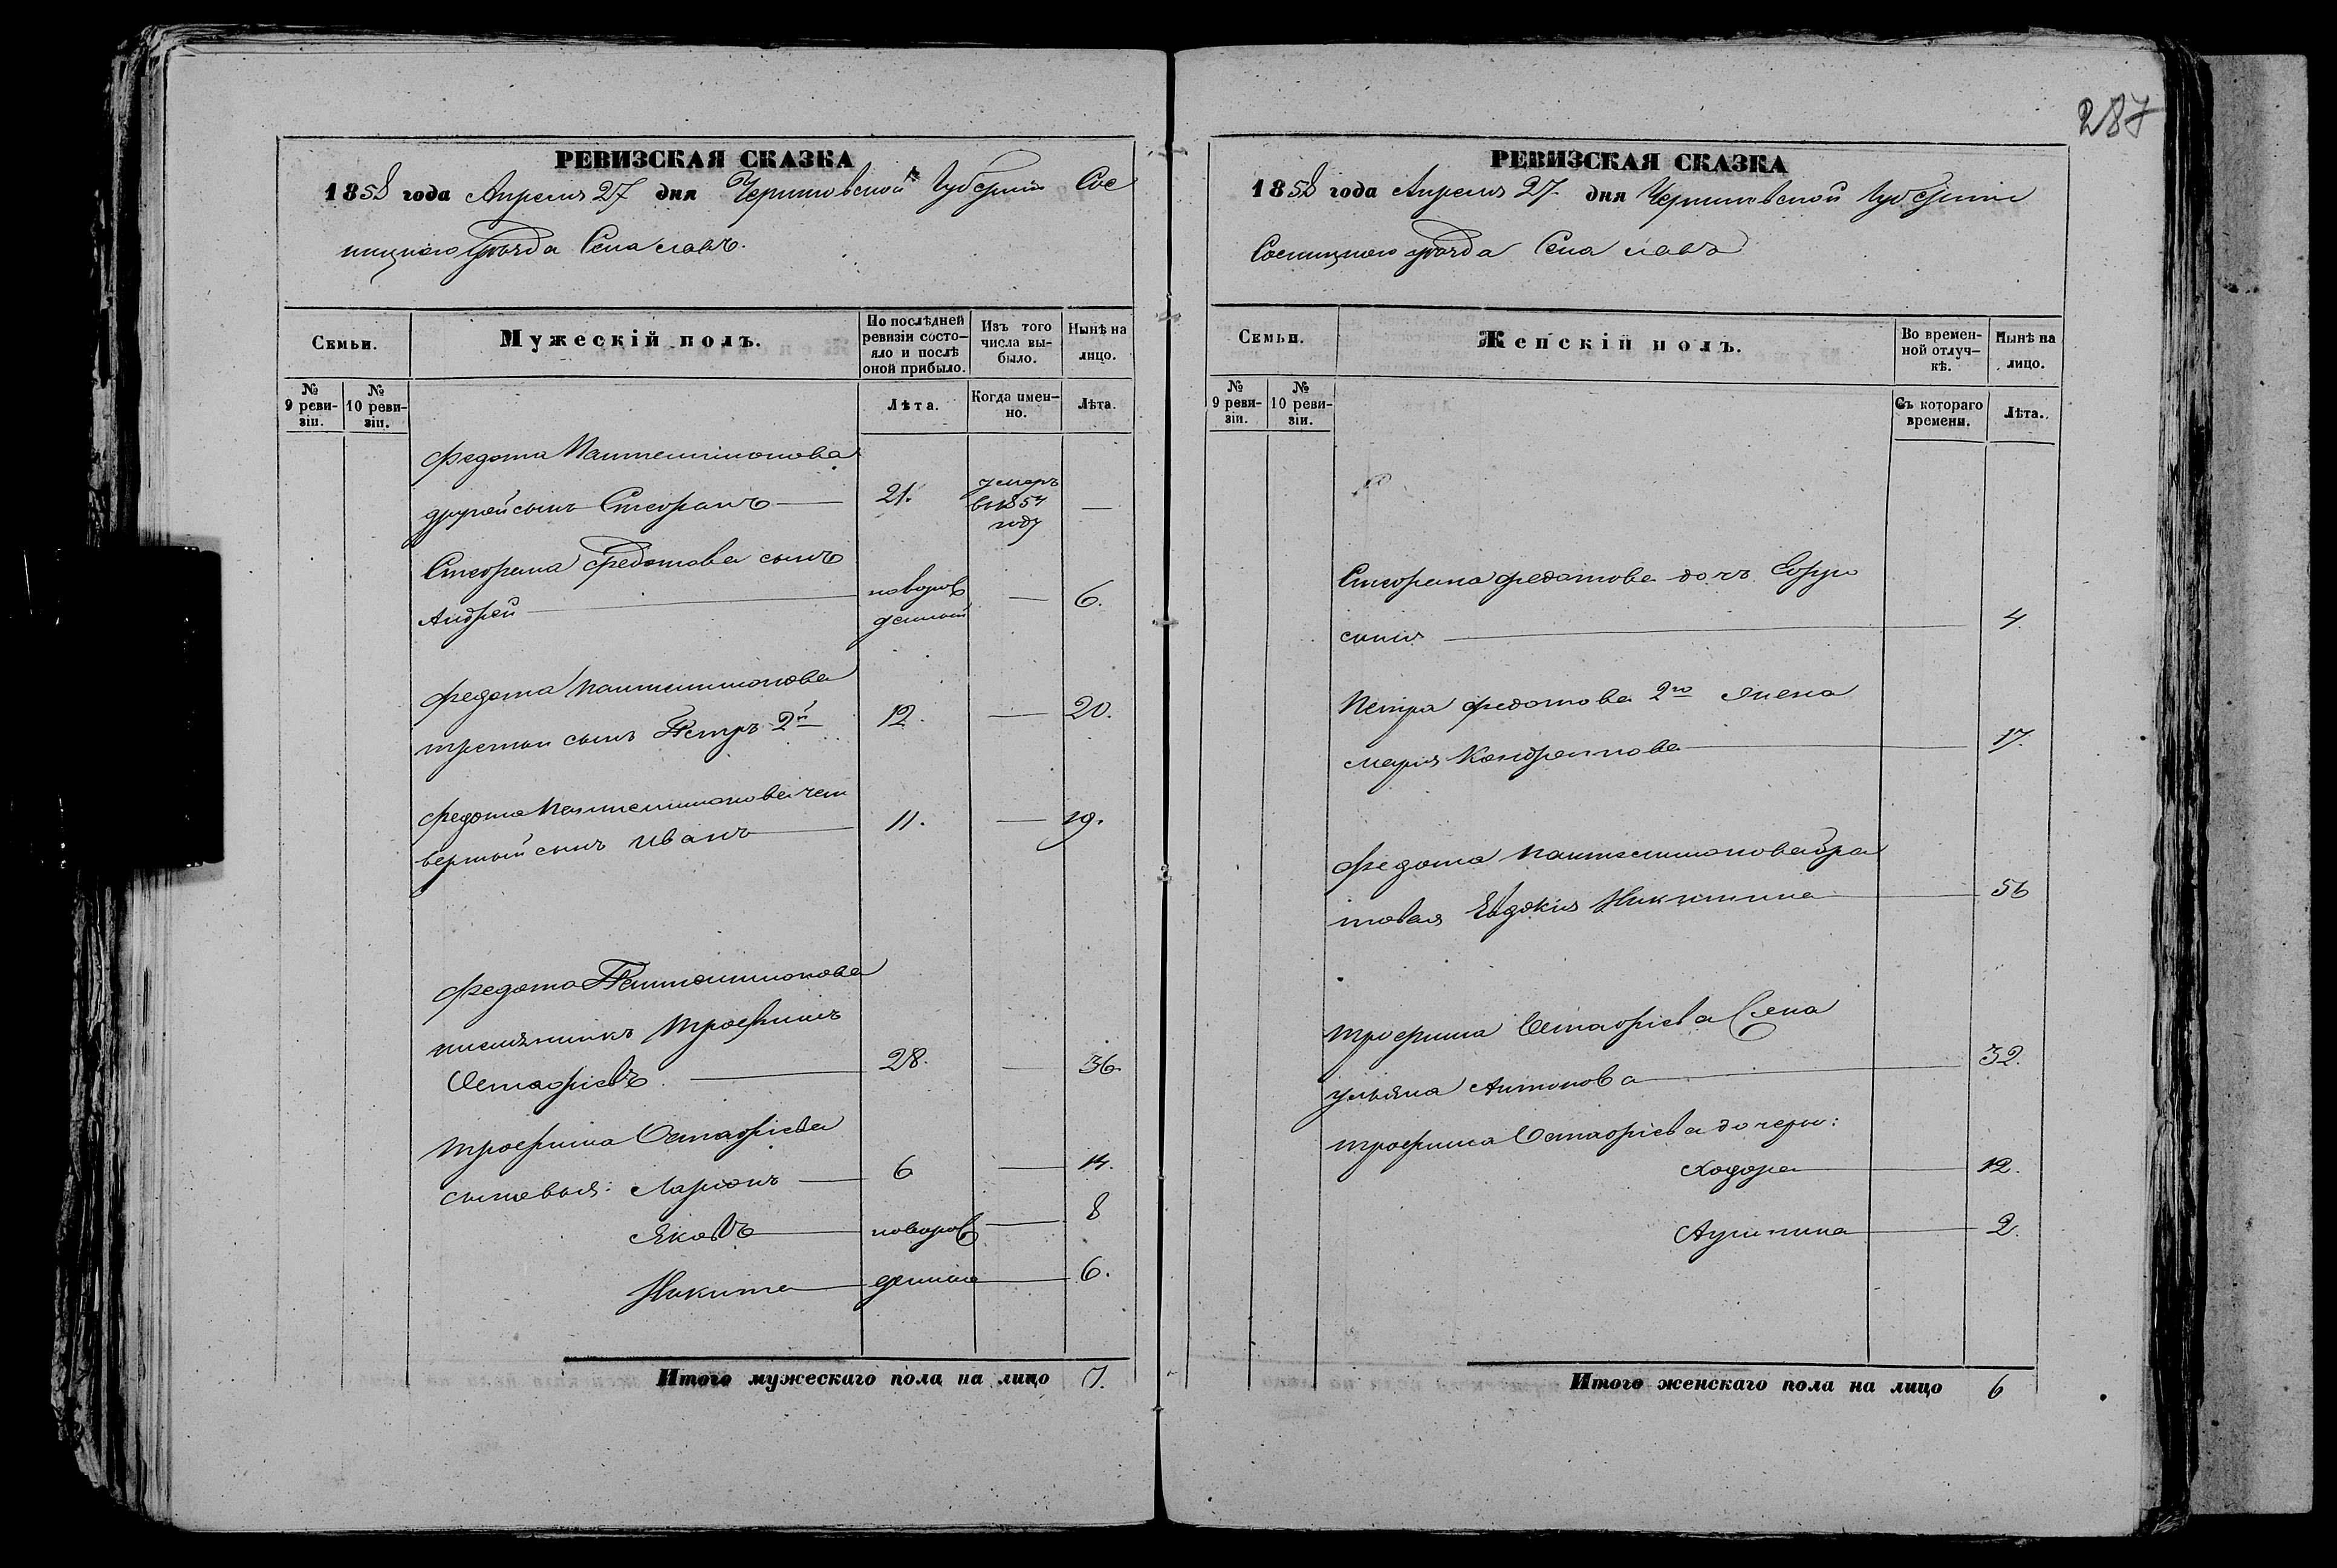 287
РЕВИЗСКАЯ СКАЗКА
1858 года Апреля 27 дня Черниговской Губерніи Сос
ницкаго уѣзда Села Савъ.
Семьи.
Мужескій полъ.
По послѣдней ревизіи состо-
яло и послѣ
оной прибыло.
Изъ того
числа вы-
было.
Нынѣ на
лицо.
№
9 реви-
зіи.
№
10 реви-
зіи.
Лѣта.
Когда имен-
но.
Лѣта.
Федота Пантелимонова
другой сынъ Стефанъ 21. умеръ
въ 1854
году —
Стефана Федотова сынъ
Андрей новорож
денный — 6.
Федота Пантелимонова
третьи сынъ Петръ 2й 12. — 20.
Федота Пантелимонова чет
вертый сынъ Иванъ 11. — 19.
Федота Пантелимонова
племянникъ Трофимъ
Остафіевъ 28. — 36.
Трофима Остафіева
сыновья: Ларіонъ 6 — 14.
Яковъ новорож — 8
Никита денные 6.
Итого мужескаго пола на лицо 7.
РЕВИЗСКАЯ СКАЗКА
1858 года Апреля 27 дня Черниговской Губерніи
Сосницкаго уѣзда Села Савъ
Семьи.
Женскій полъ.
Во времен-
ной отлуч-
кѣ.
Нынѣ на
лицо.
№
9 реви-
зіи.
№
10 реви-
зіи.
Съ котораго
времени.
Лѣта.
Стефана Федотова дочь Ефро
синія 4
Петра Федотова 2го Жена
Марія Кондратова 17.
Федота Пантелимонова бра
товая Евдокія Никитина 56
Трофима Остафіева Жена
Ульяна Антонова 32.
Трофима Остафіева дочери:
Ходора 12.
Агрипина 2.
Итого женскаго пола на лицо 6